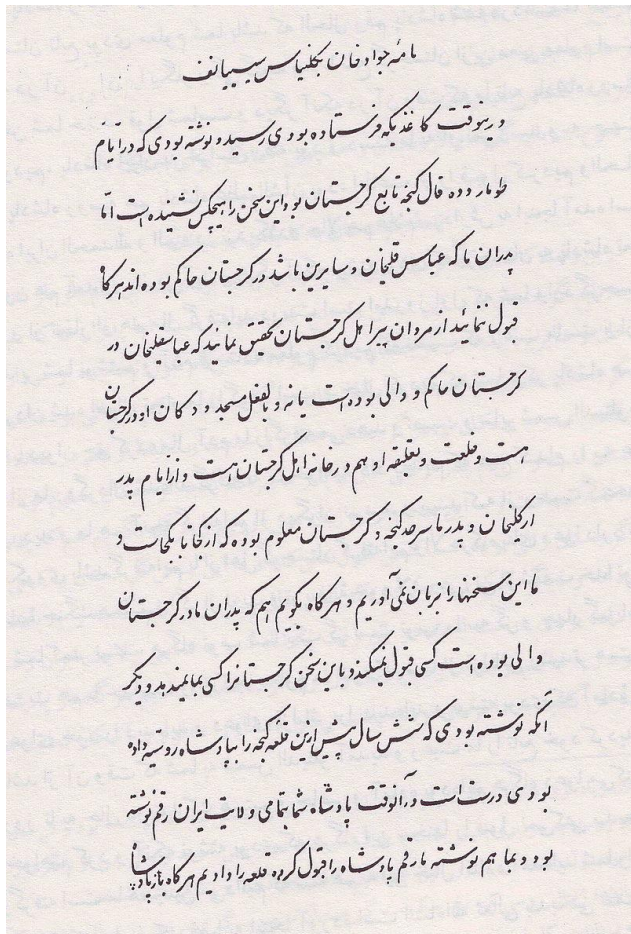 نامهٔ جواد خان بکنیاس سیسیانف
درینوقت کاغذیکه فرستاده بودی رسید و نوشته بودی که در ایام
طومار دده فال گنجه تابع گرجستان بود این سخن را هیچکس نشنیده است امّا
پدران ما که عباسقلیخان و سایرین باشد در گرجستان حاکم بوده‌اند هرگاه
قبول ننمائید از مردان پیر اهل گرجستان تحقیق نمایند که عباسقلیخان در
گرجستان حاکم و والی بوده است یا نه و بالفعل مسجد و دکان او در گرجستان
هست و خلعت و تعلیقه او هم در خانه اهل گرجستان هست و از ایام پدر
ارکلیخان و پدر ما سرحد گنجه و گرجستان معلوم بوده که از کجا تا بکجاست و
ما این سخنها را بزبان نمی آوریم و هرگاه بگویم هم که پدران ما در گرجستان
والی بوده است کسی قبول نمیکند و باین سخن گرجستانرا کسی بما نمیدهد و دیگر
آنکه نوشته بودی که شش سال پیش ازین قلعه گنجه را بپادشاه روسیه داده
بودی درست است در آنوقت پادشاه شما بتمامی ولایت ایران رقم نوشته
بود و بما هم نوشته ما رقم پادشاه را قبول کرده قلعه را دادیم هرگاه باز پادشاه